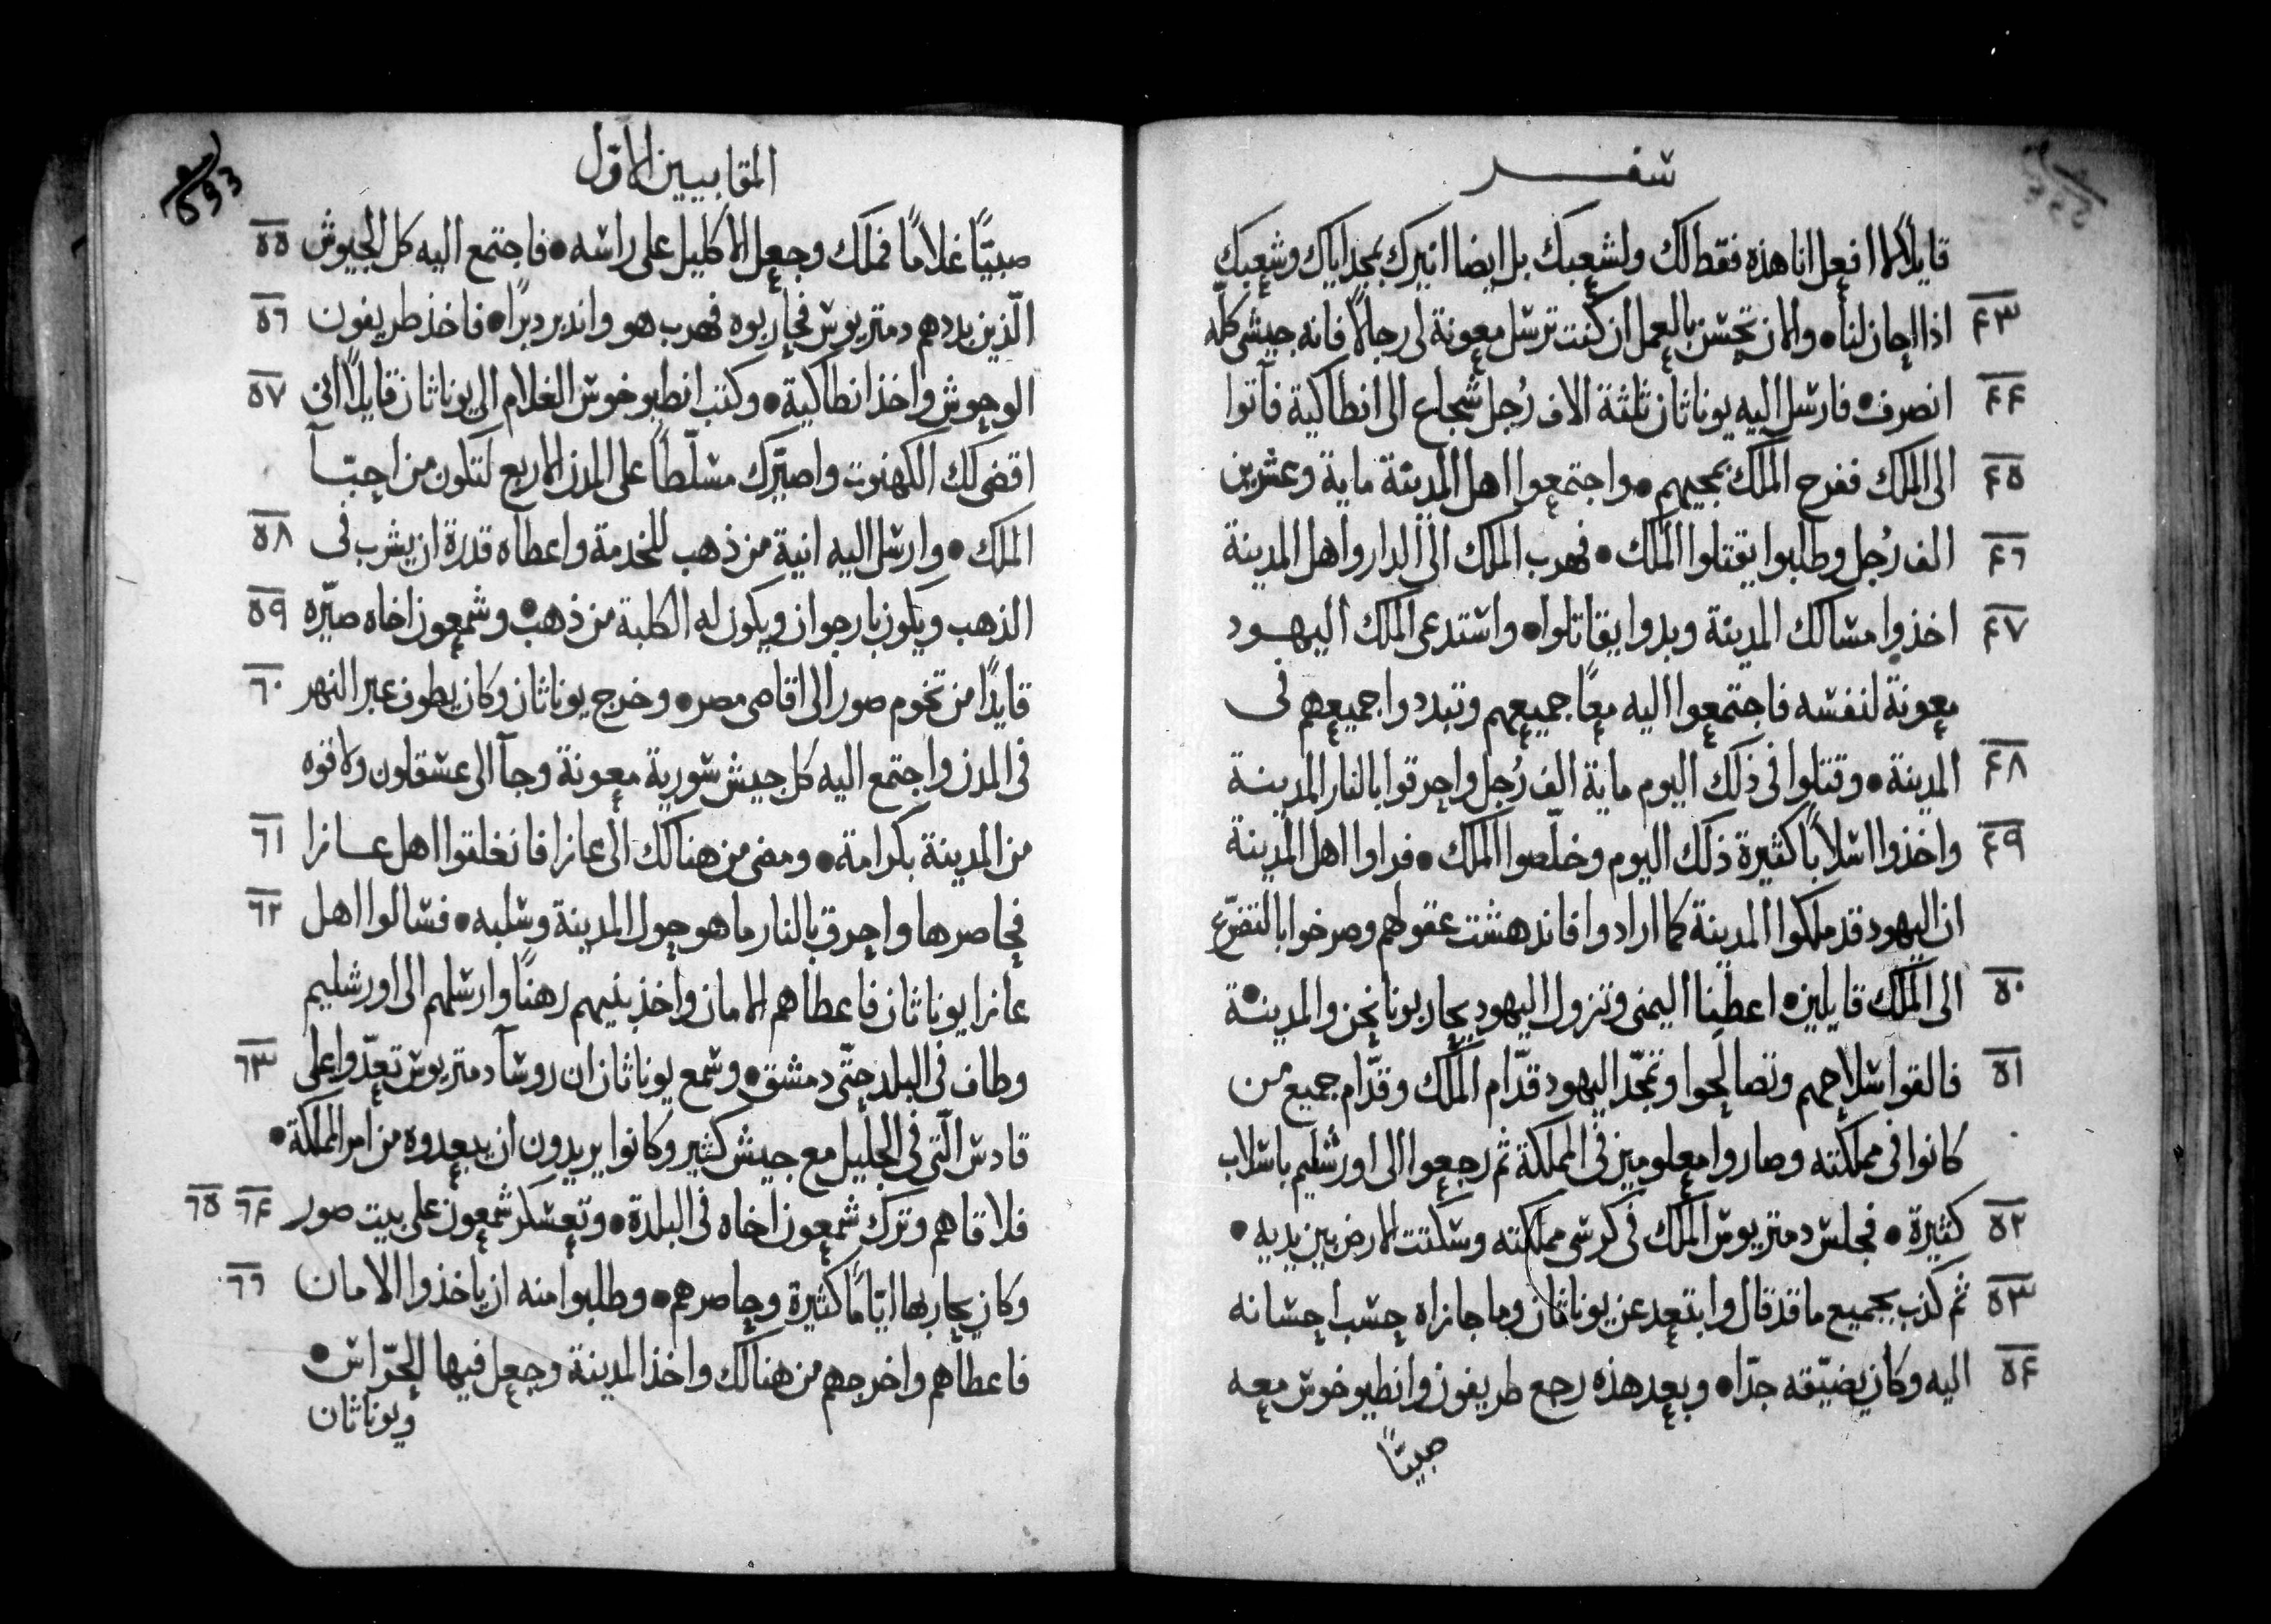 سفر
قايلاً لا افعل انا هذه فقط لك ولشعبك بل ايضا انيرك بمجد اياك وشعبك
٤٣ اذا احان لنا • والان تحسن بالعمل ان كنت ترسل معونة لى رجالاً فانه جيشى كله
٤٤ انصرف • فارسل اليه يوناثان ثلثة الاف رُجل شجاع الى انطاكية فآتوا
٤٥ الى الملك ففرح الملك بمجيهم • واجتمعوا اهل المدينة ماية وعشرين
٤٦ الف رُجل وطلبوا يقتلوا الملك • فهرب الملك الى الدار واهل المدينة
٤٧ اخذوا مسالك المدينة وبدوا يقاتلوا • واستدعى الملك اليهود
معونة لنفسه فاجتمعوا اليه معًا جميعهم وتبددوا جميعهم فى
٤٨ المدينة • وقتلوا فى ذلك اليوم ماية الف رُجل واحرقوا بالنار المدينة
٤٩ واخذوا اسلابًا كثيرة ذلك اليوم وخلّصوا الملك • فراوا اهل المدينة
ان اليهود قد ملكوا المدينة كما ارادوا فاندهشت عقولهم وصرخوا بالتضرّع
٥٠ الى الملك قايلين • اعطنا اليمنى وتزول اليهود يحاربونا نحن والمدينة
٥١ فالقوا سلاحهم وتصالحوا وتمجّد اليهود قدّام الملك وقدّام جميع من
كانوا فى مملكته وصاروا معلومين فى المملكة ثم رجعوا الى اورشليم باسلاب
٥٢ كثيرة • فجلس دمتريوس الملك فى كرسى مملكته وسكتت الارض بين يديه •
٥٣ ثم كذب بجميع ما قد قال وابتعد عن يوناثان وما جازاه حسب احسانه
٥٤ اليه وكان يضيّقه جدّا • وبعد هذه رجع طريفون وانطيوخوس معه
صبيّاً
المقابيين الاوّل
593
صبيّاً غلامًا فملك وجعل الاكليل على راسه • فاجتمع اليه كل الجيوش ٥٥
الّذين بددهم دمتريوس فحاربوه فهرب هو واندبر دبرًا • فاخذ طريفون ٥٦
الوحوش واخذ انطاكية • وكتب انطيوخوس الغلام الى يوناثان قايلاً انى ٥٧
اقضى لك الكهنوت واصيّرك مسلّطاً على المدن الاربع لتكون من احبّآ
الملك • وارسل اليه انية من ذهب للخدمة واعطاه قدرة ان يشرب فى ٥٨
الذهب ويكون بارجوان ويكون له الكلبة من ذهب • وشمعون اخاه صيّره ٥٩
قايدًا من تخوم صور الى اقاصى مصر • وخرج يوناثان وكان يطوف عبر النهر ٦٠
فى المدن واجتمع اليه كل جيش سورية معونة وجآ الى عسقلون ولاقوه
من المدينة بكرامة • ومضى من هنالك الى عازا فانغلقوا اهل عازا ٦١
فحاصرها واحرق بالنار ما هو حول المدينة وسلبه • فسالوا اهل ٦٢
عازا يوناثان فاعطاهم الامان واخذ بنيهم رهنًا وارسلهم الى اورشليم
وطاف فى البلد حتّى دمشق • وسمع يوناثان ان روسآ دمتريوس تعدّوا على ٦٣
قادس الّتى فى الجليل مع جيش كثير وكانوا يريدون ان يبعدوه من امر المملكة •
فلاقاهم وترك شمعون اخاه فى البلدة • وتعسكر شمعون على بيت صور ٦٤ ٦٥
وكان يحاربها ايّامًا كثيرة وحاصرهم • وطلبوا منه ان ياخذوا الامان ٦٦
فاعطاهم واخرجهم من هنالك واخذ المدينة وجعل فيها الحرّاس •
ويوناثان